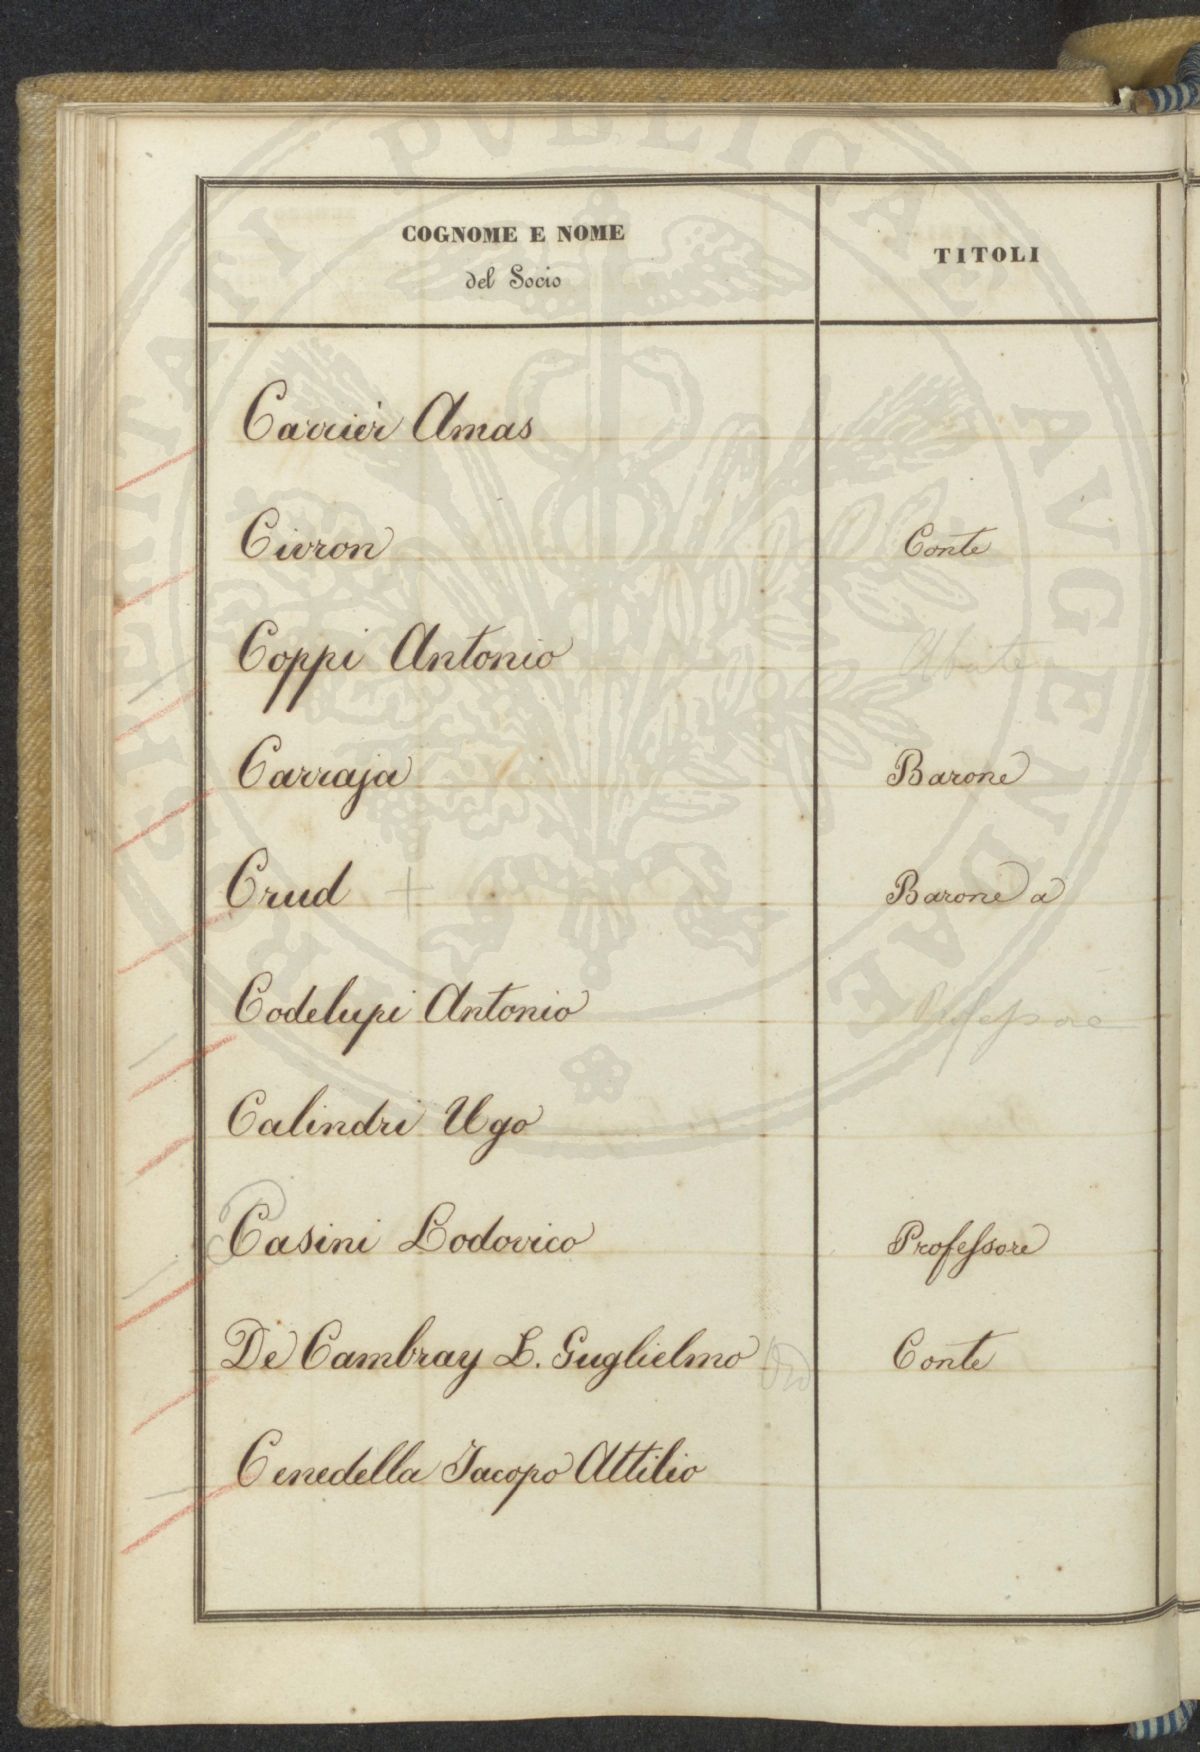 COGNOME E NOME
del Socio
TITOLI
Carrièr Amas
Civron Conte
Coppi Antonio Abate
Carraja Barone
Crud + Barone a
Codelupi Antonio Professore
Calindri Ugo
Casini Lodovico Professore
De Cambray L. Guglielmo Conte
Cenedella Jacopo Attilio
PROSPERITATI PVBLICAE AVGENDAE